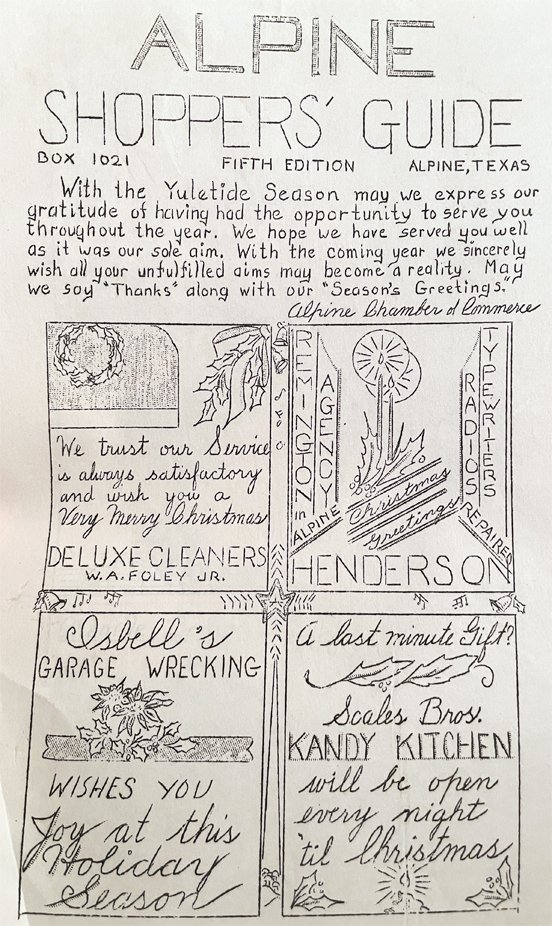 ALPINE
SHOPPERS' GUIDE
BOX 1021 FIFTH EDITION ALPINE, TEXAS
With the Yuletide Season may we express our
gratitude of having had the opportunity to serve you
throughout the year. We hope we have served you well
as it was our sole aim. With the coming year we sincerely
wish all your unfulfilled aims may become a reality. May
we say "Thanks" along with our "Season's Greetings."
Alpine Chamber of Commerce
We trust our Service
is always satisfactory
and wish you a
Very Merry Christmas
DELUXE CLEANERS
W.A. FOLEY JR.
REMINGTON
AGENCY
in
ALPINE
Christmas
Greetings
RADIOS
TYPEWRITERS
REPAIRED
HENDERSON
Isbell's
GARAGE WRECKING
WISHES YOU
Joy at this
Holiday
Season
A last minute Gift?
Scales Bros.
KANDY KITCHEN
will be open
every night
'til Christmas